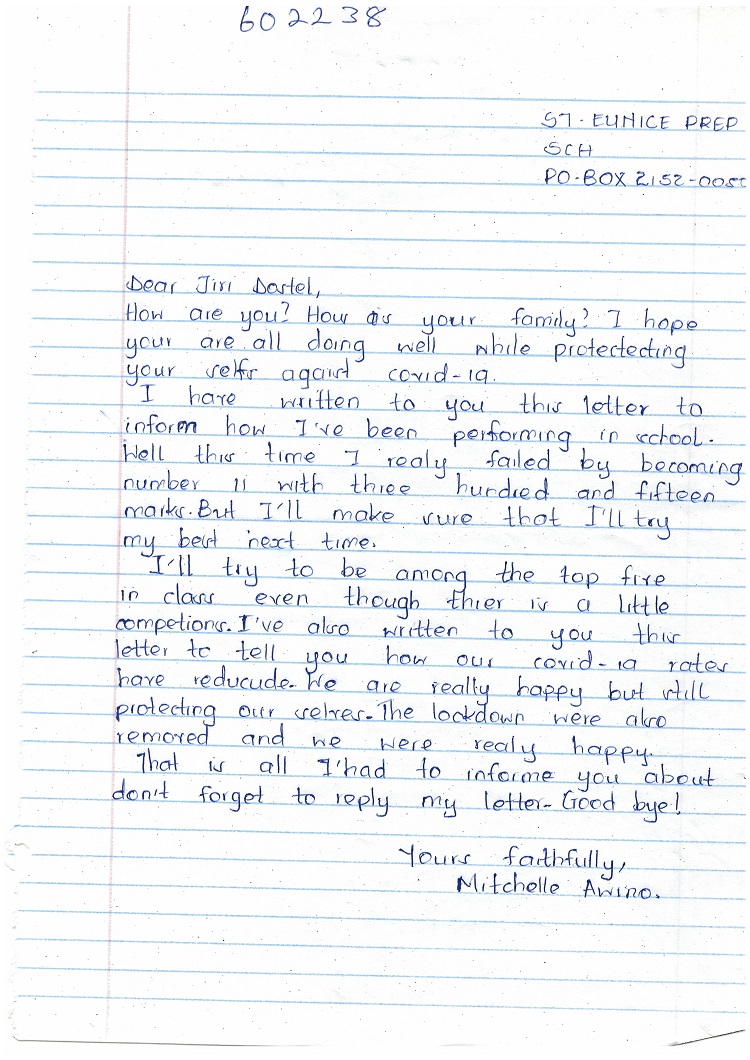 602238
ST. EUNICE PREP
SCH
PO.BOX 2152-0050
Dear Jiri Dartel,
How are you? How is your family? I hope
your are all doing well while protectecting
your selfs against covid-19.
I have written to you this letter to
inform how I've been performing in school.
Well this time I realy failed by becoming
number 11 with three hundred and fifteen
marks. But I'll make sure that I'll try
my best next time.
I'll try to be among the top five
in class even though thier is a little
competions. I've also written to you this
letter to tell you how our covid-19 rates
have reducude. We are really happy but still
protecting our selves. The lockdown were also
removed and we were realy happy.
That is all I'had to informe you about
don't forget to reply my letter. Good bye!
Yours faithfully,
Mitchelle Awino.